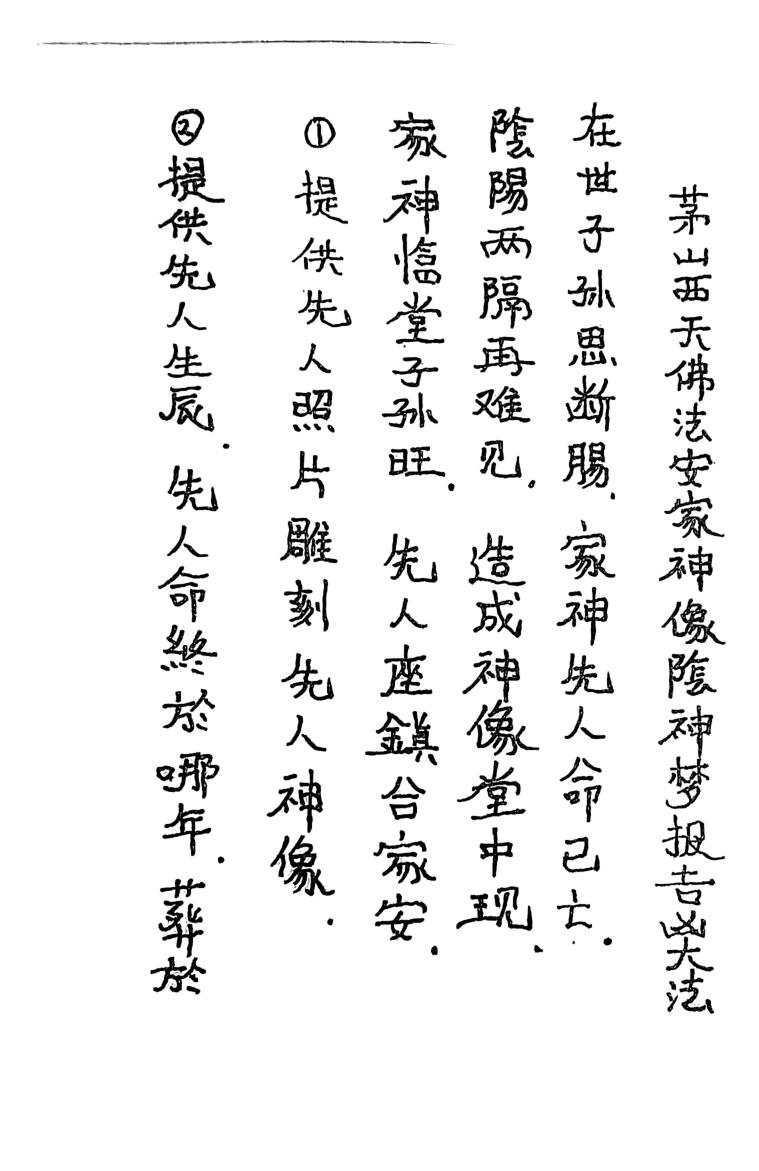 茅山西天佛法安家神像陰神梦报吉凶大法
在世子孙思断腸．家神先人命已亡．
陰陽两隔再难见．造成神像堂中现．
家神临堂子孙旺．先人座鎮合家安．
①提供先人照片雕刻先人神像．
②提供先人生辰．先人命終於哪年．葬於